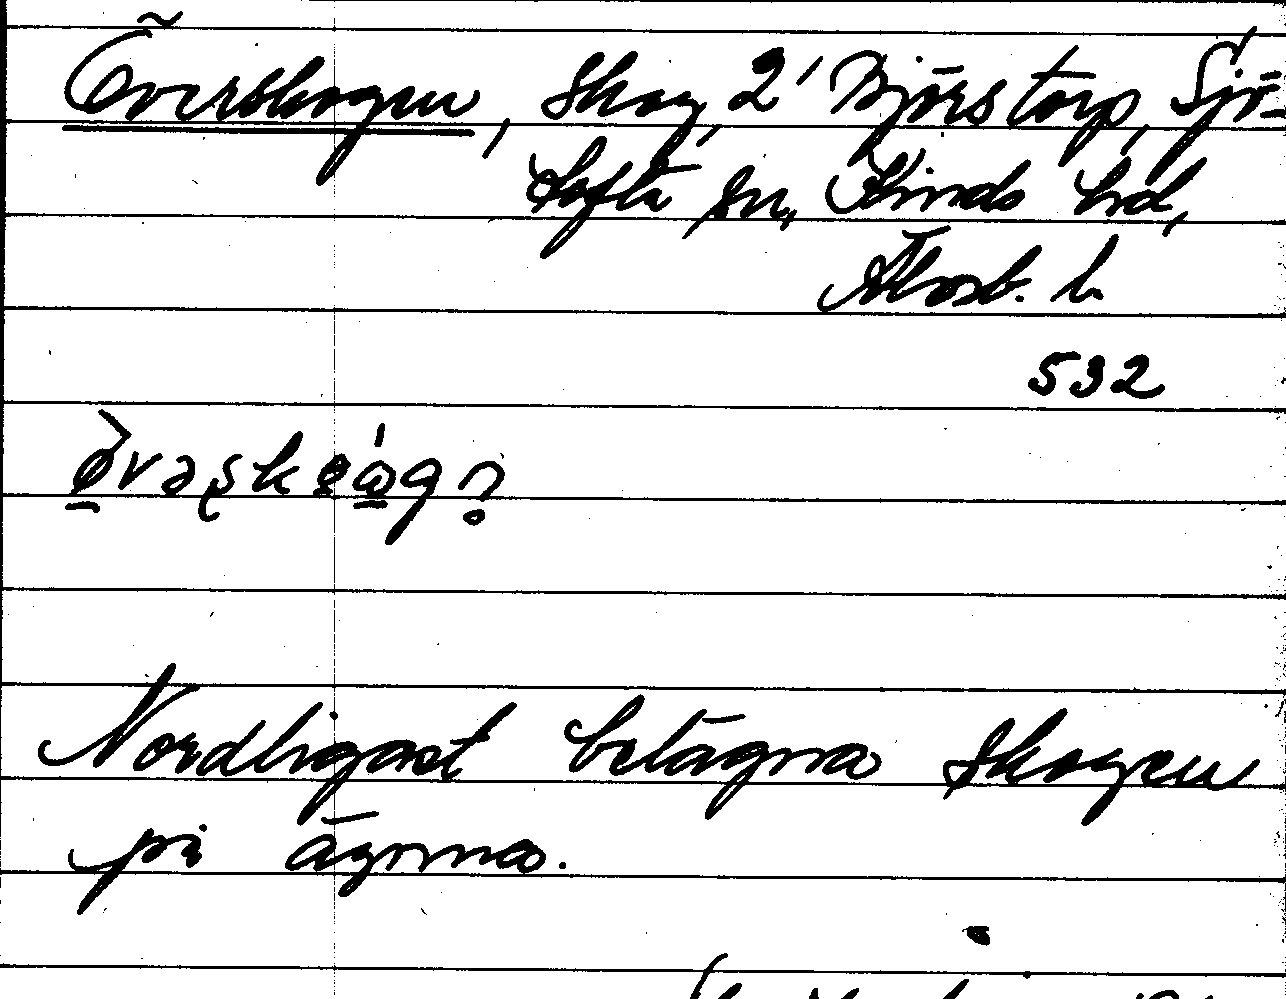 Överskogen, Skog, 2' Björstorp, Sjö-
tofta sn, Kinds hd,
Älvsb. l.
532
Nordligast belägna skogen
på ägorna.